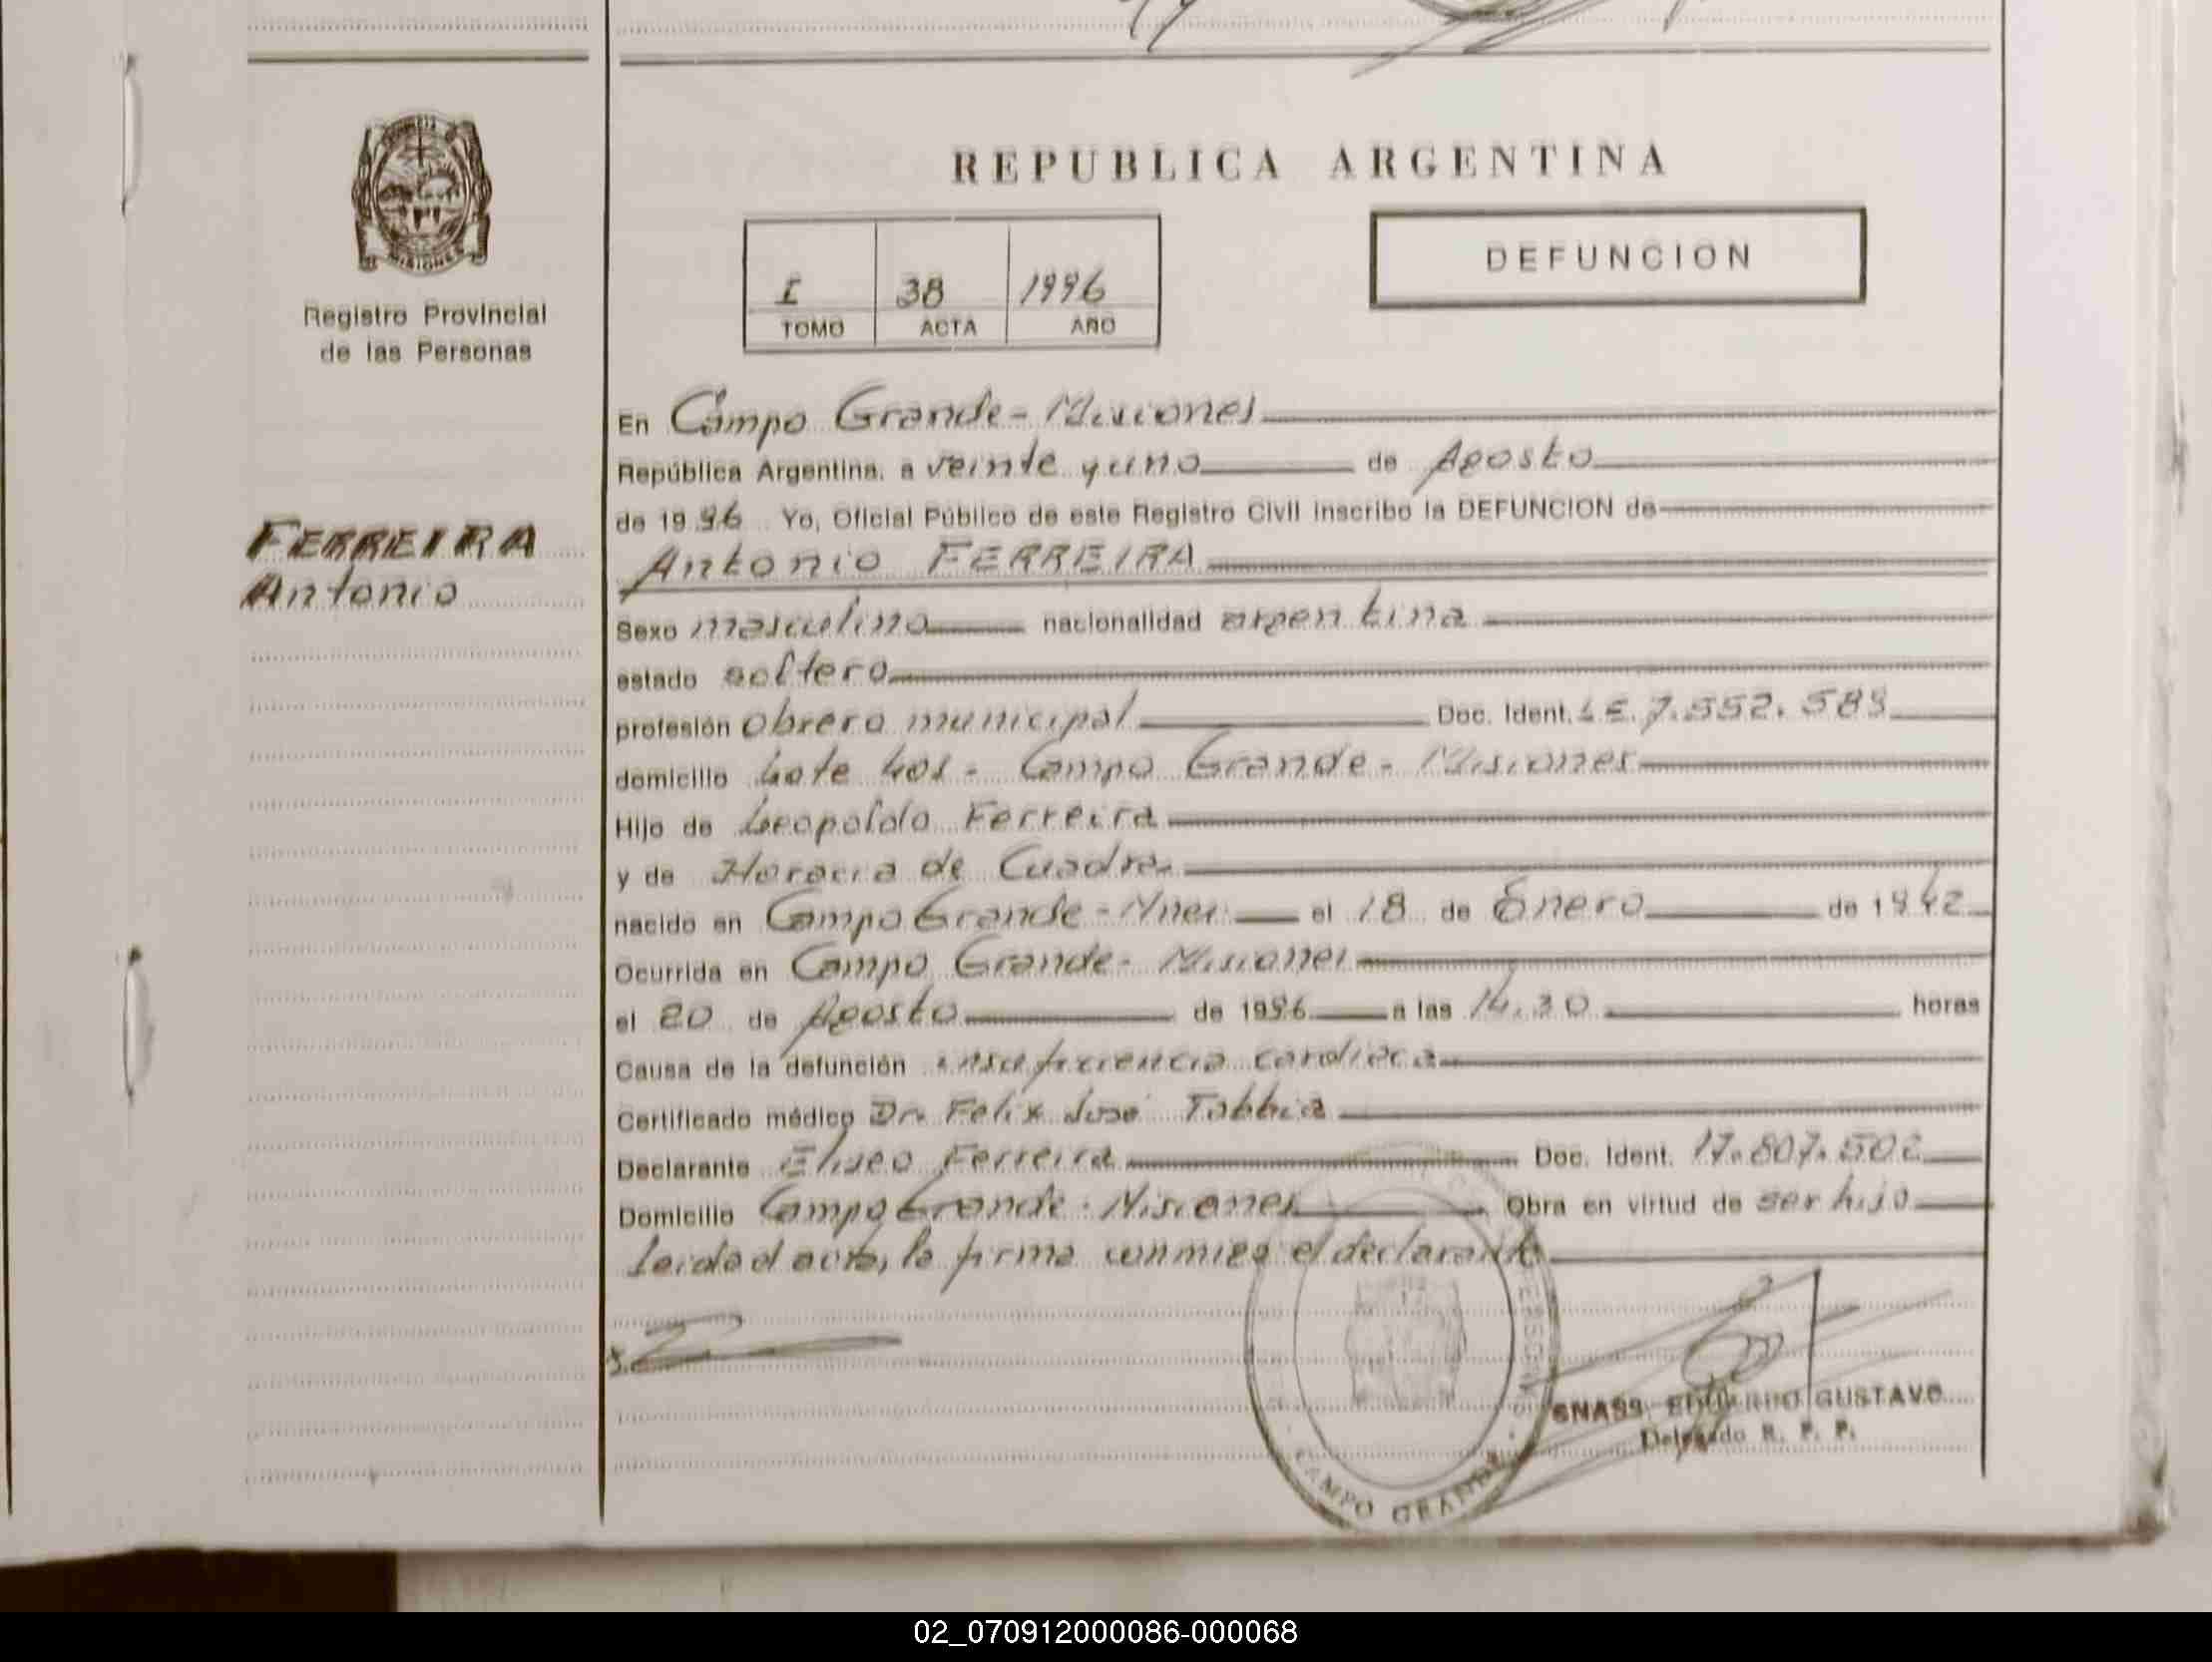 REPUBLICA ARGENTINA
I 38 1996
TOMO ACTA AÑO
DEFUNCION
MISIONES
Registro Provincial
de las Personas
FERREIRA
Antonio
En Campo Grande - Misiones
República Argentina, a veinte y uno de Agosto
de 1996 Yo, Oficial Público de este Registro Civil inscribo la DEFUNCION de
Antonio FERREIRA
Sexo masculino nacionalidad argentina
estado soltero
profesión obrero municipal Doc. Ident. L.E. 7.552.589
domicilio Lote 401 - Campo Grande - Misiones
Hijo de Leopoldo Ferreira
y de Horacia de Cuadra
nacido en Campo Grande - Mnes el 18 de Enero de 1942
Ocurrida en Campo Grande - Misiones
el 20 de Agosto de 1996 a las 14.30 horas
Causa de la defunción insuficiencia cardiaca
Certificado médico Dr. Felix José Tabbia
Declarante Eliseo Ferreira Doc. Ident. 17.807.502
Domicilio Campo Grande - Misiones Obra en virtud de ser hijo
Leida el acta, la firma conmigo el declarante
CAMPO GRANDE
EDUARDO GUSTAVO
Delegado R. P. P.
02_070912000086-000068